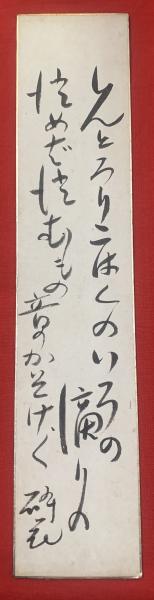 しんとろりこはくのいろの滴りの
めば むもの音のかそけく
砕花